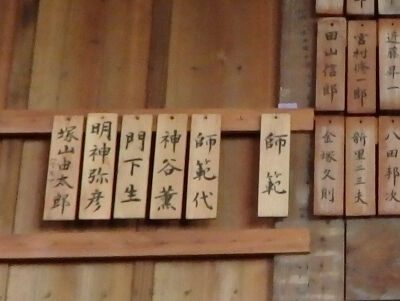 師範
師範代
神谷薫
門下生
明神弥彦
塚山由太郎
近藤昇一
宮村修一郎
田山信郎
八田邦次
新里二三夫
金塚久則